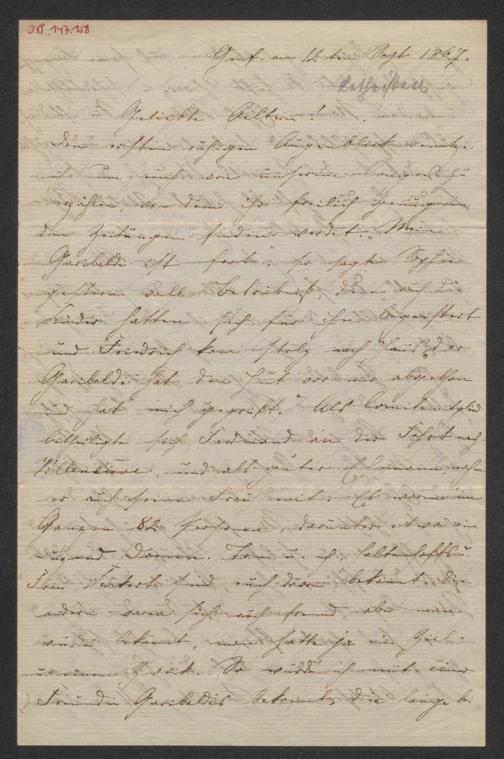 J.N. 147.158
Genf am 12ten Sept 1867.
Geliebte Eltern!
Den ersten ruhigen Augenblick benütze
ich um euch von unserem Congress zu
erzählen, von dem ihr freilich genug in
den Zeitungen finden werdet. "Mein
Garibaldi ist fort", so sagte Sophie
gestern voll Betrübniß, denn auch die
Kinder hatten sich für ihn begeistert
und Friedrich kam stolz nach Haus, "der
Garibaldi hat den Hut vor mir abgezogen
und hat mich gegrüßt." Als Comitemitglied
betheiligte sich Ferdinand an der Fahrt nach
Villeneuve, und als guter Ehemann nahm
er auch seine Frau mit. Es waren im
Ganzen 82 Personen, darunter etwa ein
Dutzend Damen. Frau
Frau sind euch davon bekannt, die
andern waren sich auch fremd aber man
wurde bekannt, man hatte ja ein Ziel
u. einen Zweck. So wurde ich mit einer
Freundin Garibaldis bekannt, die lange bei